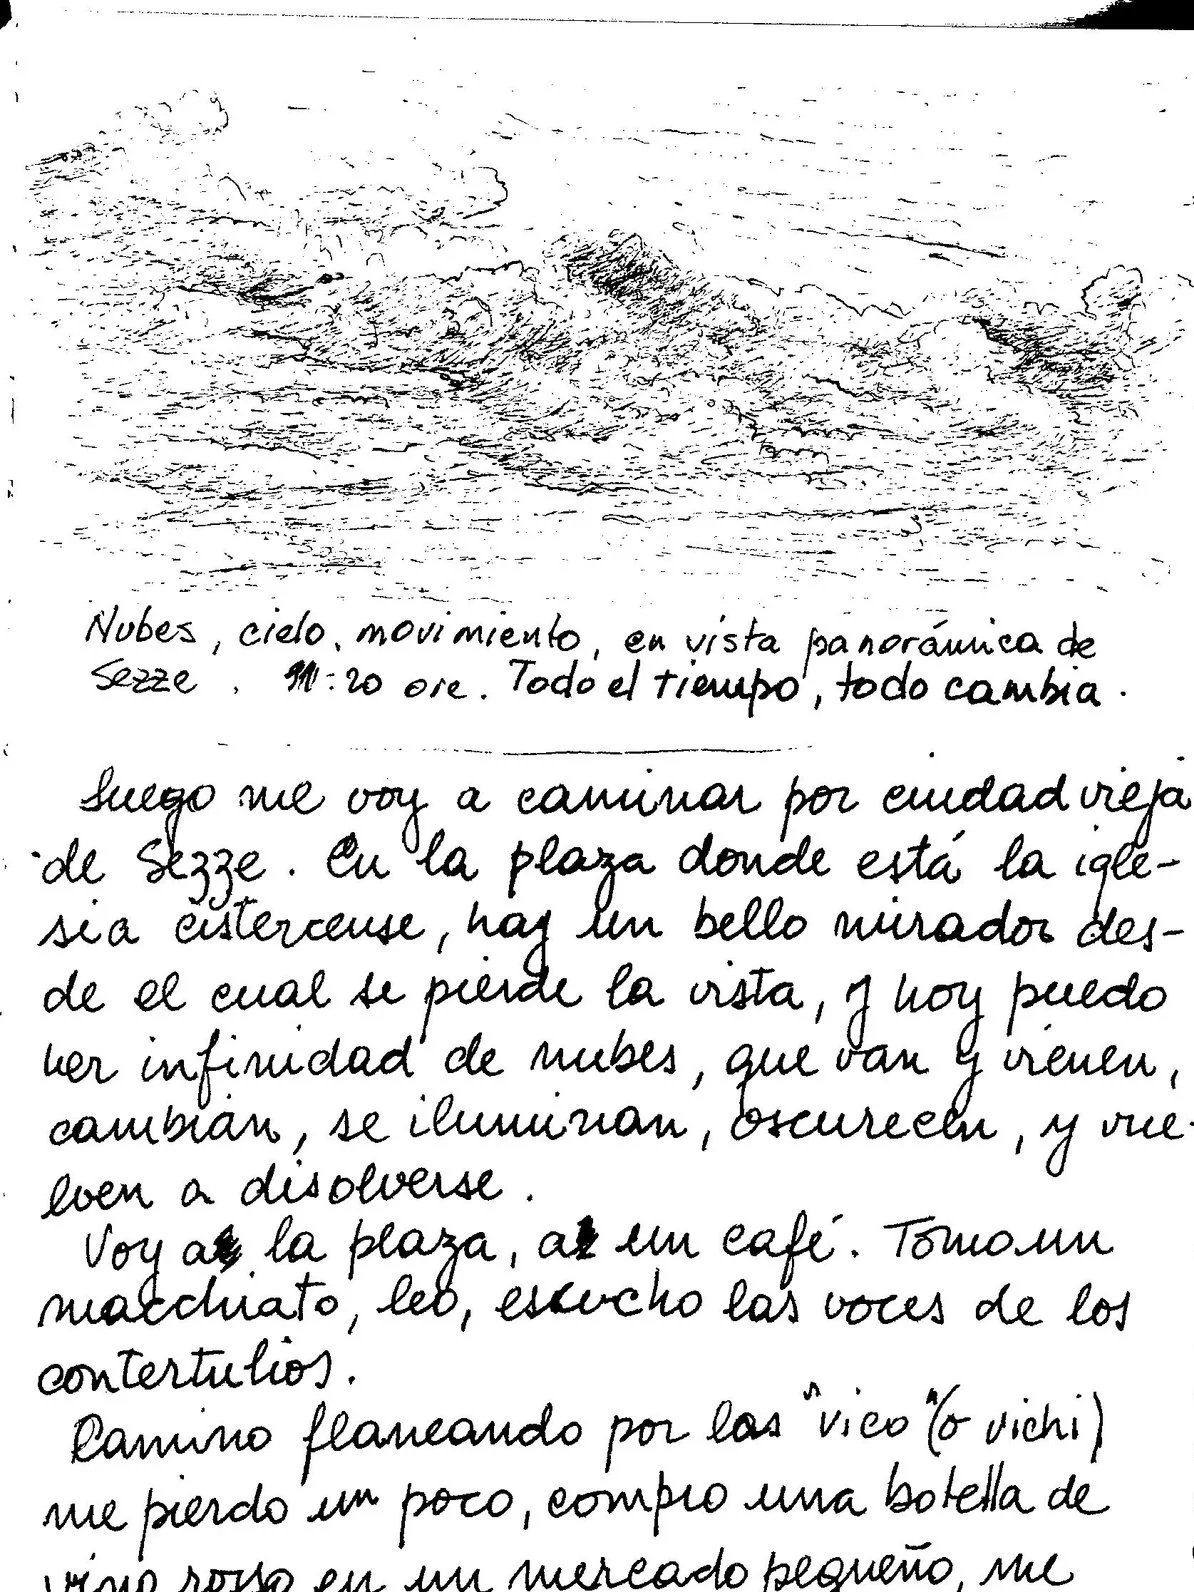 Nubes, cielo, movimiento, en vista panorámica de
Sezze. 11:20 ore. Todo el tiempo, todo cambia.
Luego me voy a caminar por ciudad vieja
de Sezze. En la plaza donde está la igle-
sia cisterceuse, hay un bello mirador des-
de el cual se pierde la vista, y hoy puedo
ver infinidad de nubes, que van y vienen,
cambian, se iluminan, oscurecen, y vue-
lven a disolverse.
Voy a la plaza, a un café. Tomo un
macchiato, leo, escucho las voces de los
contertulios.
Camino flaneando por las "vico" (o vichi)
me pierdo un poco, compro una botella de
vino rosso en un mercado pequeño, me